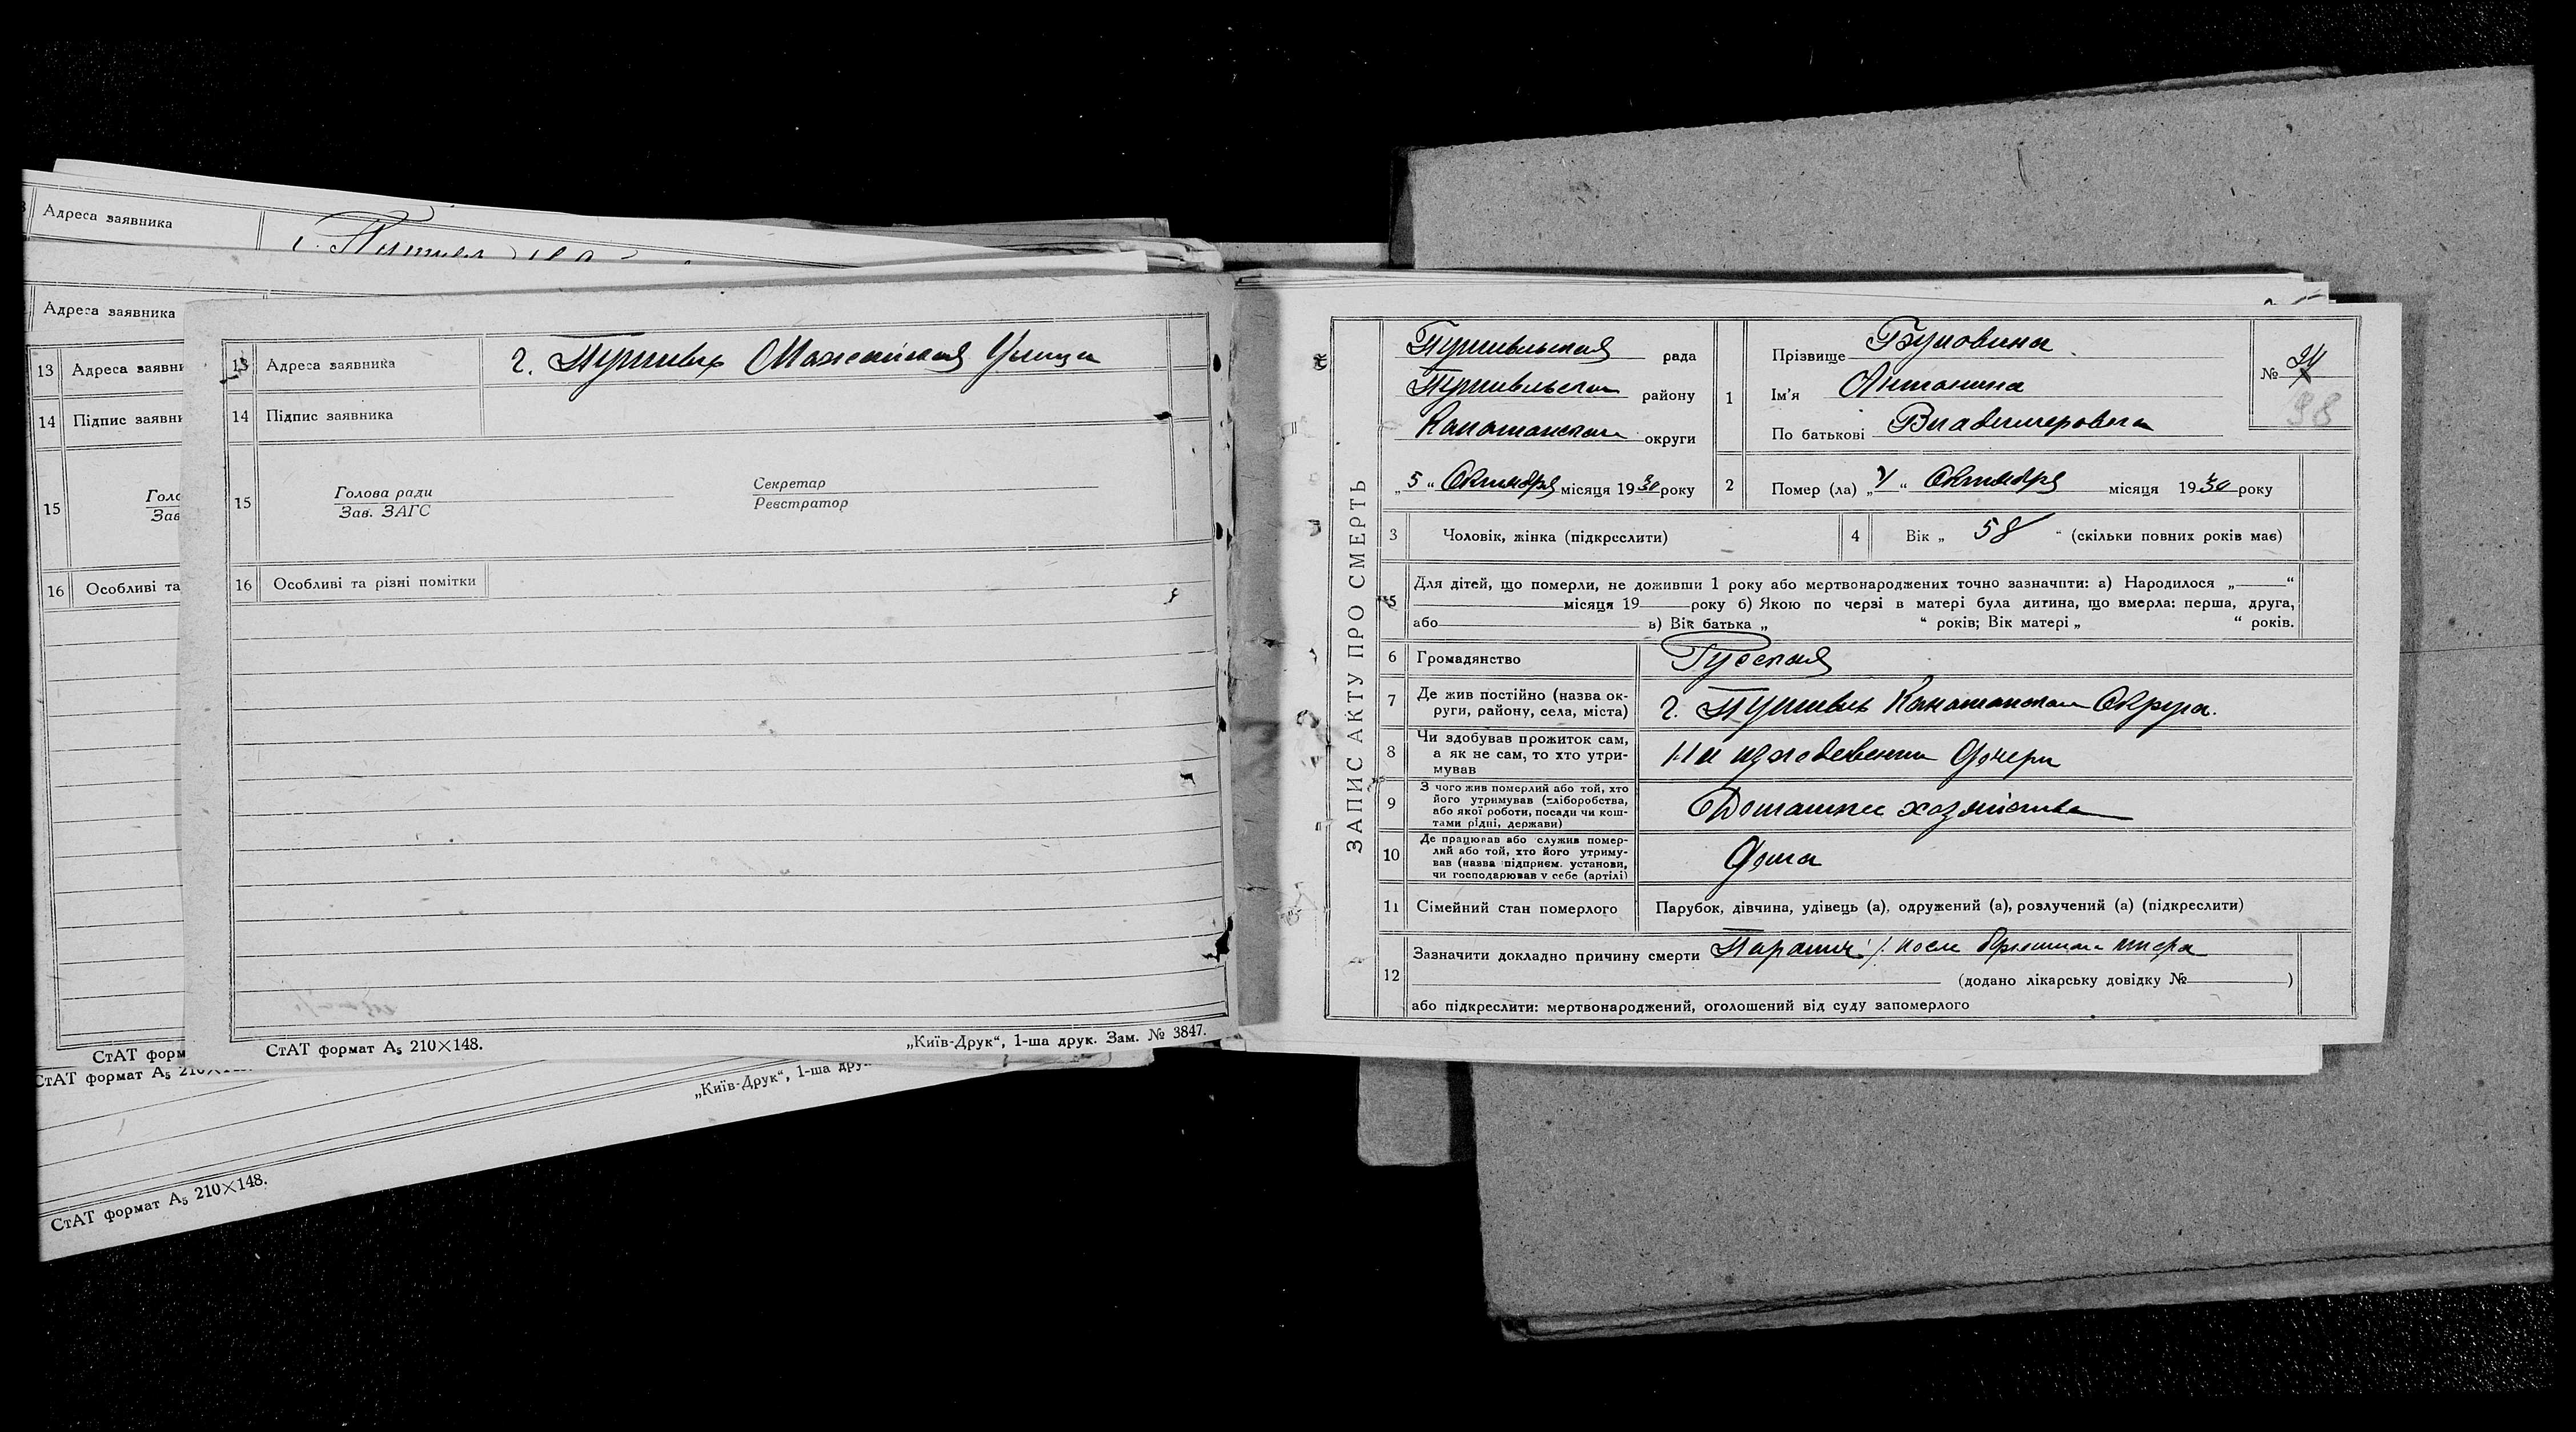 Адреса заявника
Адреса заявника
13 Адреса заявни
14 Підпис заявни
15 Голо
Зав
16 Особливі та
СтАТ форм
СтАТ формат А₅
СтАТ формат А₅ 210×148.
„Київ-Друк“, 1-ша дру
13 Адреса заявника г. Путивль Улица
14 Підпис заявника
15 Голова ради Секретар
Зав. ЗАГС Реєстратор
16 Особливі та різні помітки
СтАТ формат А₅ 210×148.
„Київ-Друк“, 1-ша друк. Зам. № 3847.
ЗАПИС АКТУ ПРО СМЕРТЬ
Путивльская рада
Путивльского району
Конотопского округи
„5“ Октября місяця 1930 року
1 Прізвище
Ім'я Антонина
По батькові Владимировна
№
38
2 Помер (ла) „4“ Октября місяця 1930 року
3 Чоловік, жінка (підкреслити)
4 Вік „58“ (скільки повних років має)
5 Для дітей, що померли, не доживши 1 року або мертвонароджених точно зазначити: а) Народилося „ “
місяця 19 року б) Якою по черзі в матері була дитина, що вмерла: перша, друга,
або в) Вік батька „ “ років; Вік матері „ “ років.
6 Громадянство Русская
7 Де жив постійно (назва ок-
руги, району, села, міста) г. Путивль Конотопского Округа.
8 Чи здобував прожиток сам,
а як не сам, то хто утри-
мував На иждевении дочери
9 З чого жив померлий або той, хто
його утримував (хліборобства,
або якої роботи, посади чи кош-
тами рідні, держави) Домашнее хозяйство
10 Де працював або служив помер-
лий або той, хто його утриму-
вав (назва підприєм. установи,
чи господарював у себе (артілі) Дома
11 Сімейний стан померлого Парубок, дівчина, удівець (а), одружений (а), розлучений (а) (підкреслити)
12 Зазначити докладно причину смерти Паралич после брюшного тифа
(додано лікарську довідку № )
або підкреслити: мертвонароджений, оголошений від суду запомерлого